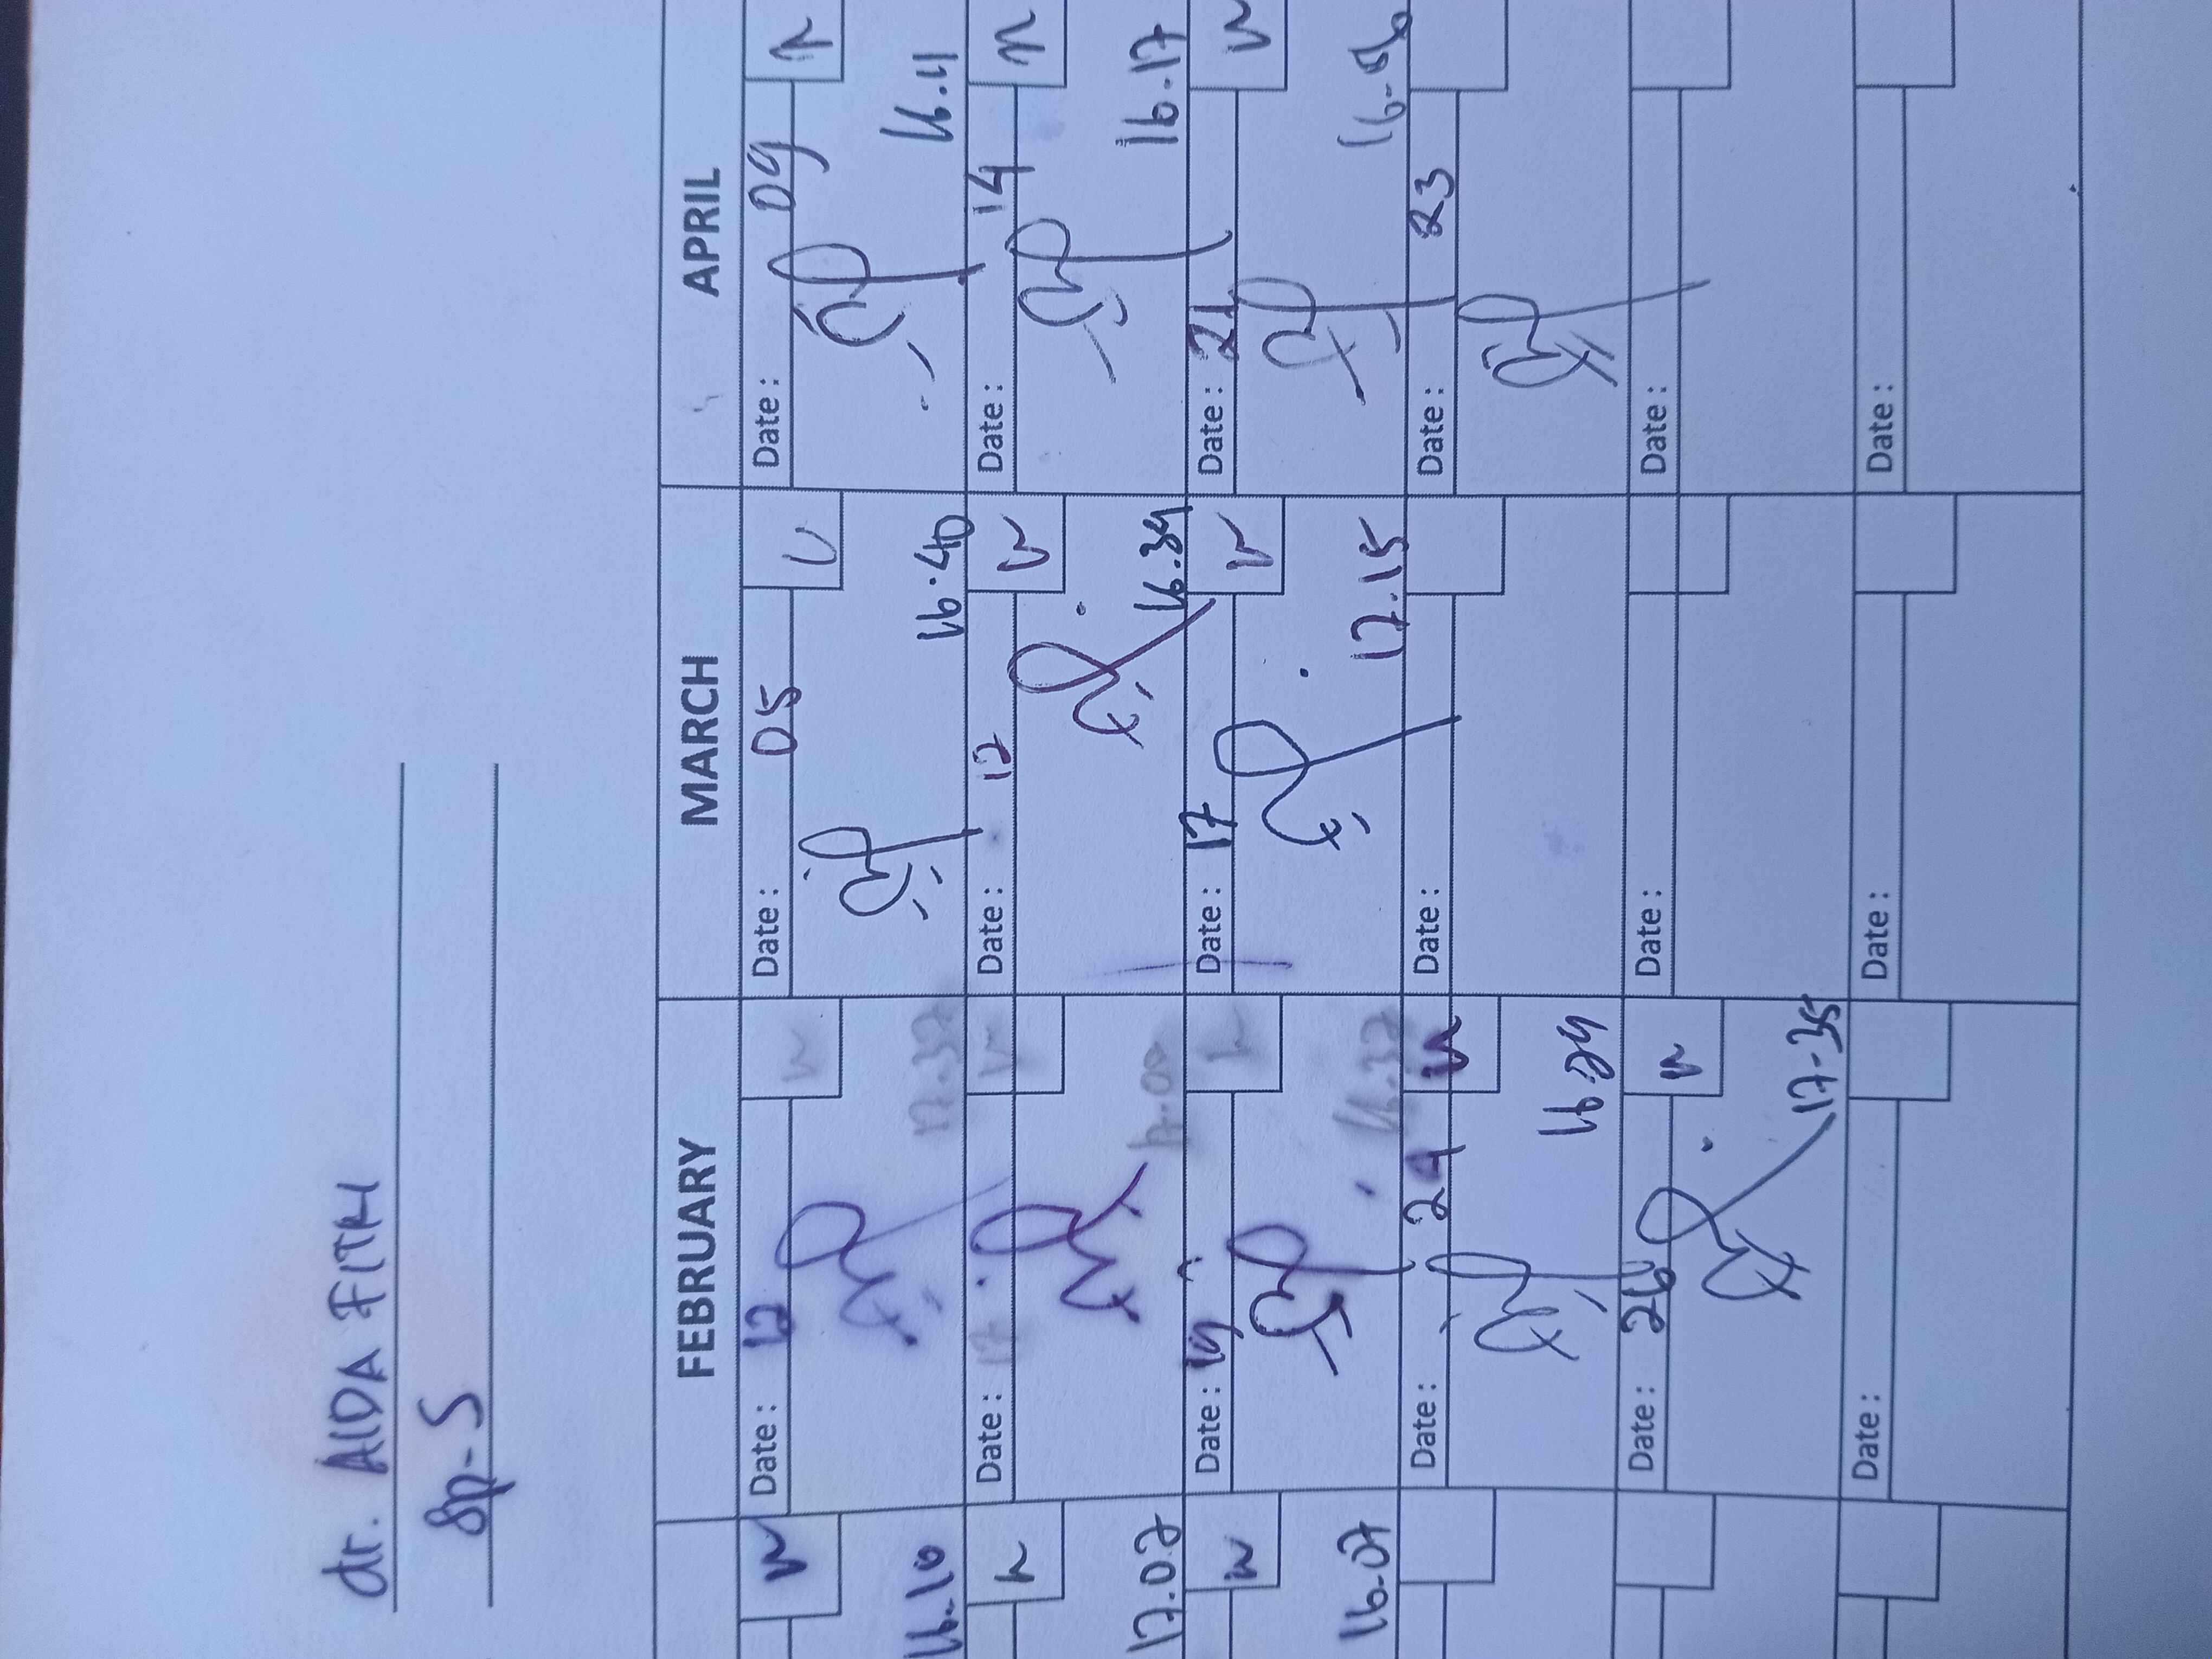 dr. AIDA FITRI
Sp-S
FEBRUARY MARCH APRIL
Date: 12 Date: 05 Date: 09
16.10 17.37 16.40 16.11
Date: 17 Date: 12 Date: 14
17.02 17.00 16.39 16.17
Date: 19 Date: 17 Date: 21
16.07 16.37 17.15
Date: 24 Date: Date: 23
16.29
Date: 26 Date: Date:
17-35
Date: Date: Date: